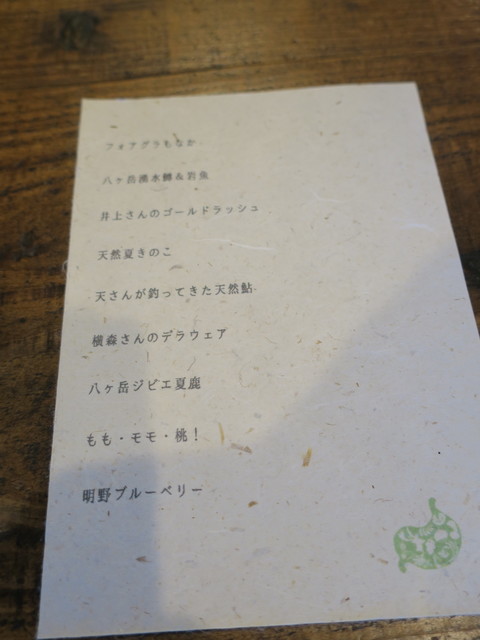 フォアグラもなか
八ヶ岳湧水鱒&岩魚
井上さんのゴールドラッシュ
天然夏きのこ
天さんが釣ってきた天然鮎
横森さんのデラウェア
八ヶ岳ジビエ夏鹿
もも・モモ・桃!
明野ブルーベリー